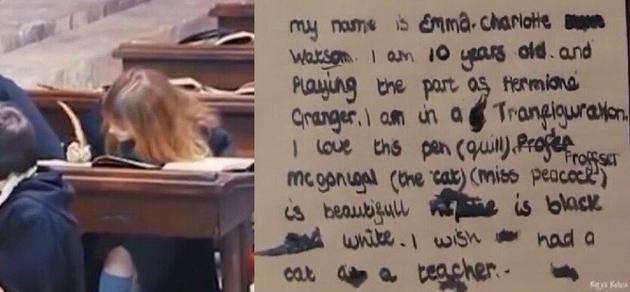 my name is Emma. Charlotte
Watson. I am 10 years old. and
Playing the part as Hermione
Granger. I am in a Tranfiguration.
I love this pen (quill). Profer
Proffser
mcgonigal (the cat) (miss peacock)
is beautifull is black
white. I wish had a
cat as a teacher.-